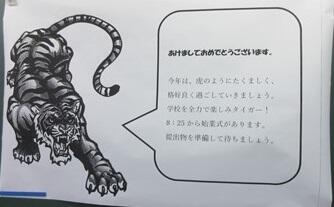 あけましておめでとうございます。
今年は、虎のようにたくましく、
格好良く過ごしていきましょう。
学校を全力で楽しみタイガー！
8：25から始業式があります。
提出物を準備して待ちましょう。